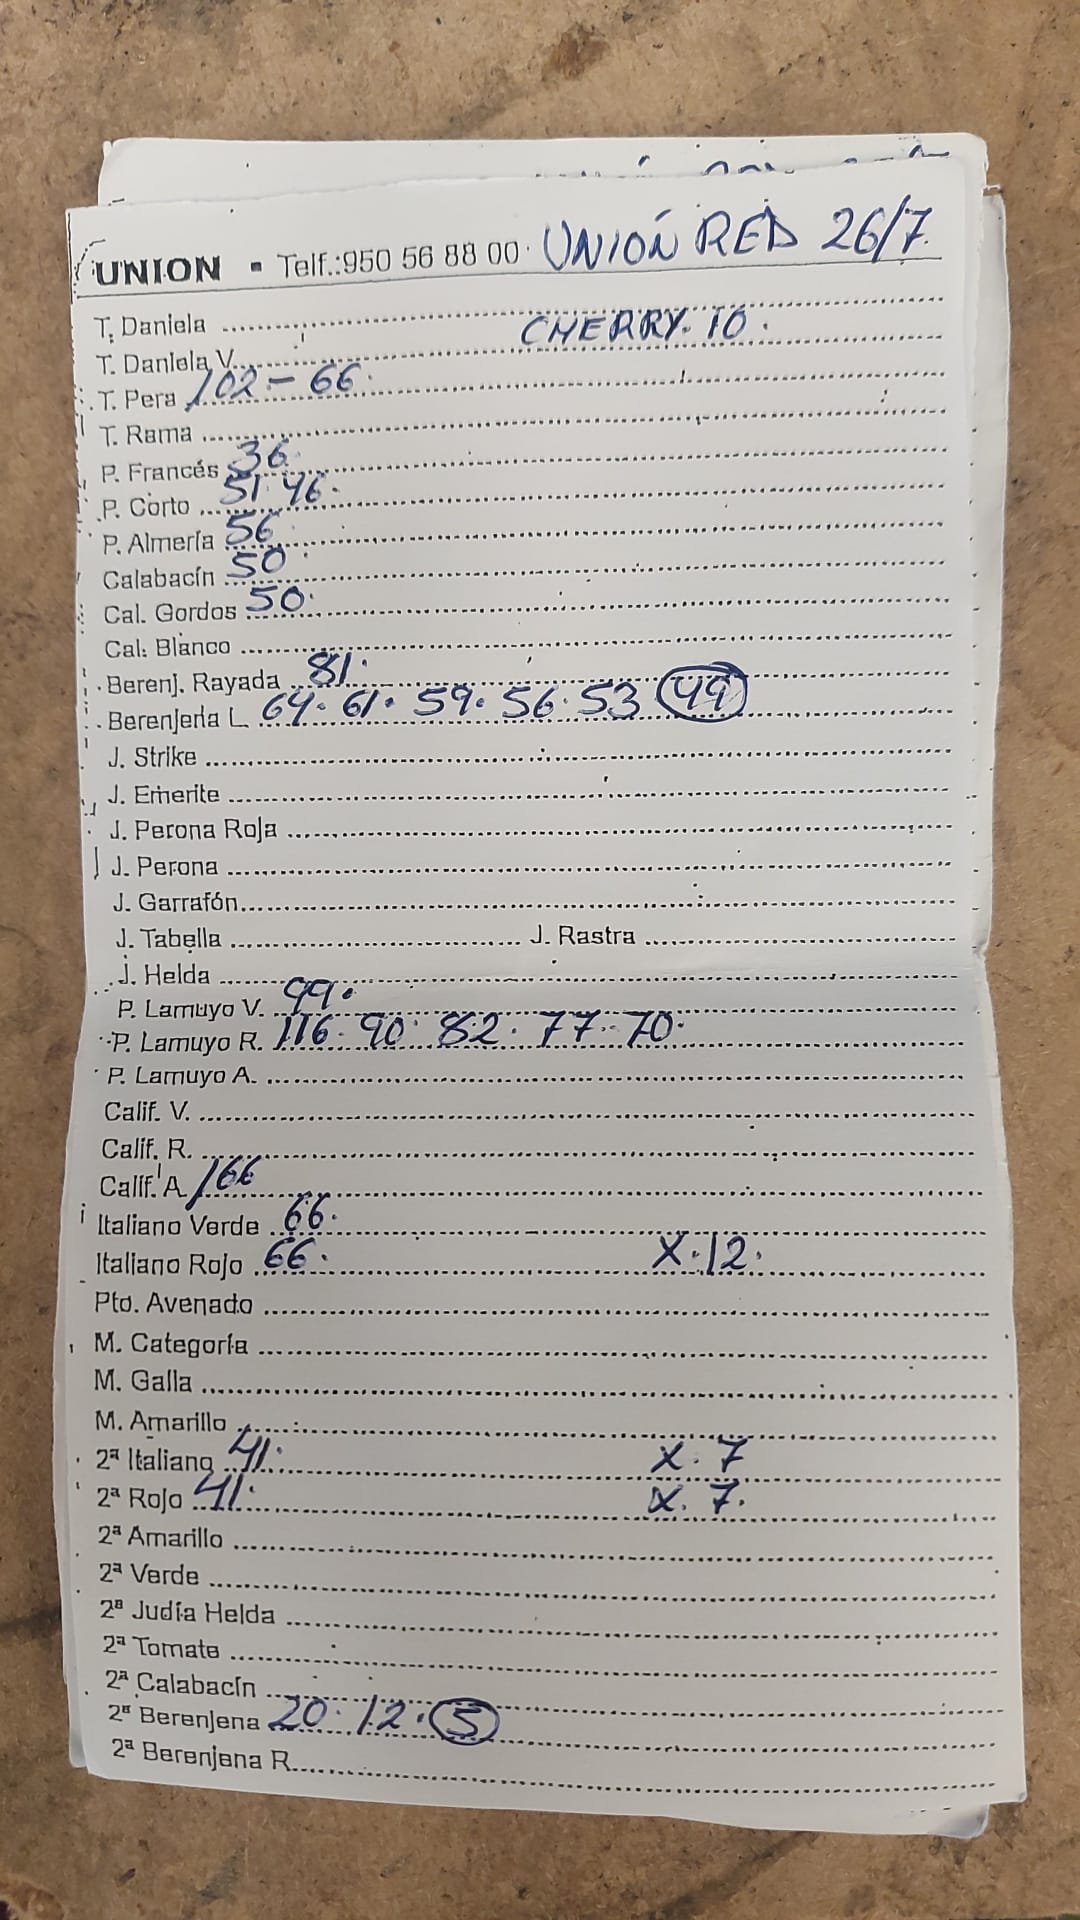 UNION - Telf.:950 56 88 00 UNIÓN RED 26/7.
T. Daniela
CHERRY. 10.
T. Daniela V.
T. Pera 102 - 66.
T. Rama
P. Francés 36.
P. Corto 51. 46.
P. Almería 56
Calabacín 50
Cal. Gordos 50.
Cal. Blanco
Berenj. Rayada 81.
Berenjena L 64. 61. 59. 56. 53 49
J. Strike
J. Emerite
J. Perona Roja
J. Perona
J. Garrafón
J. Tabella J. Rastra
J. Helda
P. Lamuyo V. 99.
P. Lamuyo R. 116. 90. 82. 77. 70.
P. Lamuyo A.
Calif. V.
Calif. R.
Calif. A 166
Italiano Verde 66.
Italiano Rojo 66. X. 12.
Pto. Avenado
M. Categoría
M. Galla
M. Amarillo
2ª Italiano 41. X. 7
2ª Rojo 41. X. 7.
2ª Amarillo
2ª Verde
2ª Judía Helda
2ª Tomate
2ª Calabacín
2ª Berenjena 20. 12. 5
2ª Berenjena R.